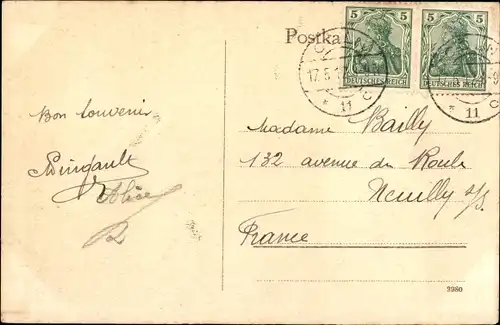 Postka
5 5
5 5
DEUTSCHES REICH
DEUTSCHES REICH
17.5.1
* 11 C
* 11 C
Bon Souvenir
Alice
Madame Bailly
132 avenue du Roule
Neuilly s/S.
France
2980